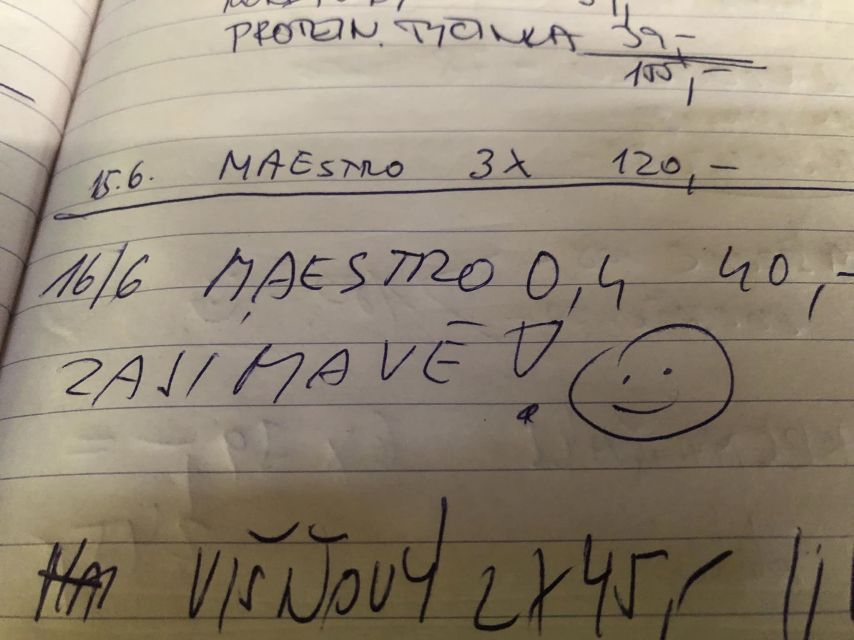 PROTEIN. TYČINKA 39,-
155,-
15.6. MAESTRO 3X 120,-
16/6 MAESTRO 0,4 40,-
ZAJIMAVÉ!
VIŠŇOVÝ 2X45,-